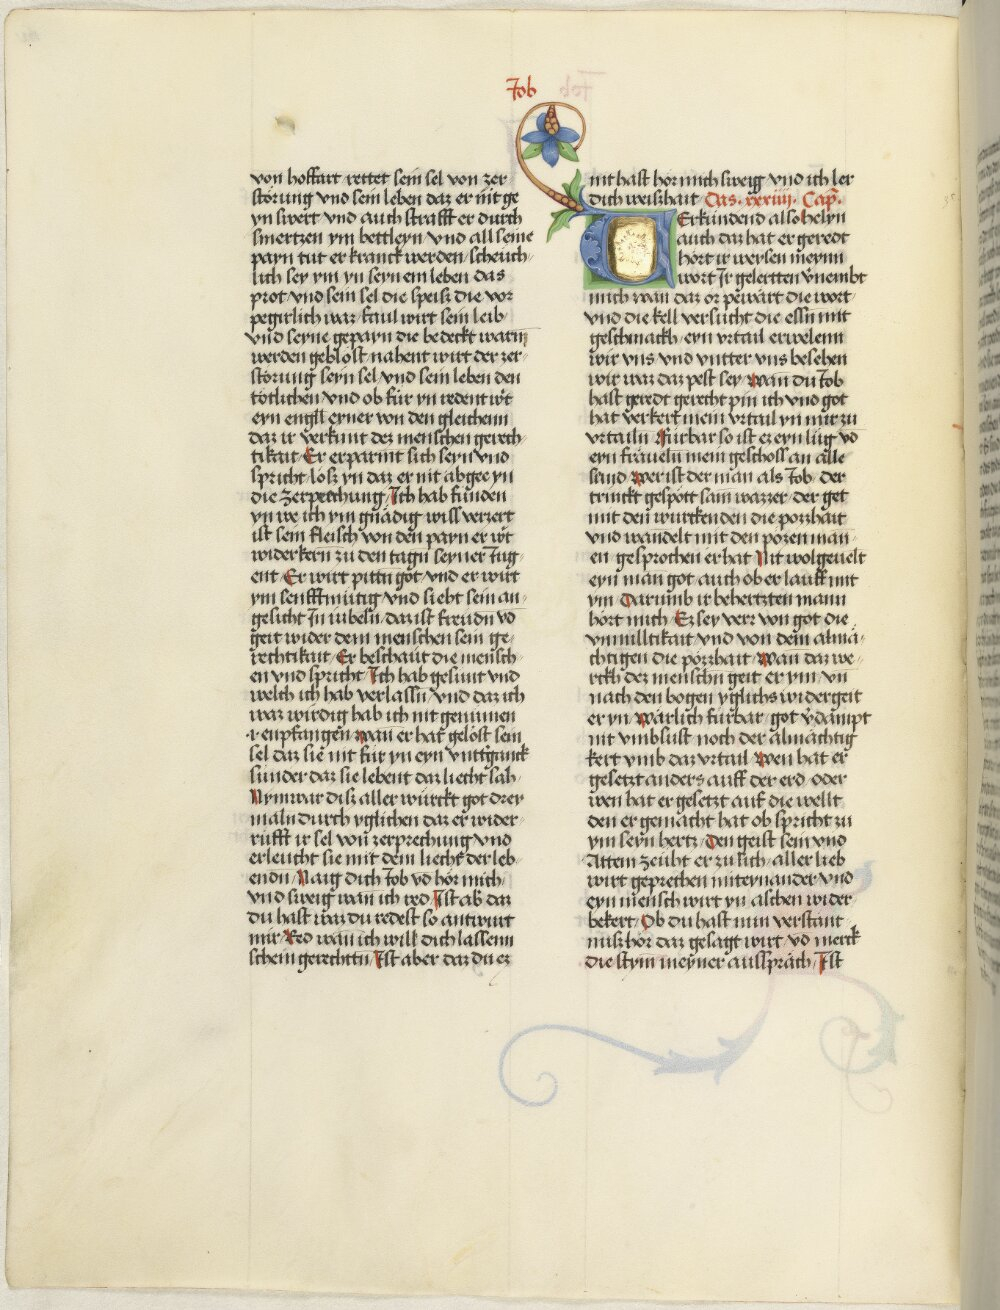 Job
von hoffart rettet sein sel von zer
störung vnd sein leben daz er nit ge
yn swert vnd auch strafft er durch
smertzen ym bettleyn vnd all seine
payn tut er kranck werden / scheuch /
lich sey ym yn seynem leben das
prot / vnd sein sel die speisz die vor
pegirlich waz faul wirt sein leib /
vnd seyne gepayn die bedeckt warn
werden geblost / nahent wirt der zer /
störung seyn sel vnd sein leben den
tötlichen vnd ob für yn redent wirt
eyn engll eyner von den gleichenn
daz ir verkünt dez menschen gerech /
tikait / Er erparmt sich seyn vnd
spricht losz yn daz er nit abgee yn
die zerprechung / Ich hab funden
yn we ich ym gnädig will verzert
ist sein fleisch von den payn er wirt
widerkern zu den tagn seyner Jug /
ent / Er wirt pittn got vnd er wirt
ym senfftmütig vnd siebt sein an /
gesicht Jn iubeln / daz ist freudn vnd
geit wider dem menschen sein ge /
rechtikait / Er beschaut die mensch /
en vnd spricht / Ich hab gesunt vnd
welch ich hab verlassn vnd daz ich
waz wirdig hab ich nit genumen
r enpfangen / wan er hat gelost sein
sel daz sie nit für yn eyn vnttganck
sunder daz sie lebent daz liecht sah /
Nym war disz aller würckt got drey
maln durch yglichen daz er wider /
rüfft ir sel von zerprechung vnd
erleucht sie mit dem liecht der leb /
endn / Naig dich Job vnd hör mich
vnd sweig wan ich red / Ist ab daz
du hast waz du redest so antwurt
mir / Red wan ich will dich lassenn
schein gerechttn / Ist aber daz du ez
nit hast hör mich sweig vnd ich ler
dich weiszhait Das · xxxiiij · Cap.
Erkündend also helyn
auch daz hat er geredt
hört ir weysen meynn
wort Ir gelertten vernembt
mich wan daz or pewart die wort /
vnd die kell versücht die essn mit
geschmach / eyn vrtail erwelenn
wir vns vnd vntter vns besehen
wir waz daz pest sey / wan du Job
hast geredt gerecht pin ich vnd got
hat verkert mein vrtail yn mir zu
vrtailn / Fürbar so ist ez eyn lüg vnd
eyn fräueln mein geschoss an alle
sund / wer ist der man als Job / der
trinckt gespött sam wazzer / der get
mit den würckenden die pozzhait
vnd wandelt mit den pözen man /
en / gesprochen er hat / Nit wolgevelt
eyn man got auch ob er lauff mit
ym / Darumb ir behertzten mann
hört mich / Ez sey verr von got die
vnmilltikait vnd von dem almä /
chtigen die pözzhait / Wan daz we /
rckh dez menschn geit er ym / vn
nach den bogen yglichs widergeit
er yn / warlich fürbar / got verdampt
nit vmbsust noch der almächtig
kert vmb daz vrtail / Wen hat er
gesetzt anders auff der erd / oder
wen hat er gesetzt auf die wellt
den er gemacht hat / ob spricht zu
ym seyn hertz / Den geist sein vnd
Attem zeüht er zu sich / aller lieb
wirt geprechen miteynander vnd
eyn mensch wirt yn aschen wider /
bekert / Ob du hast nun verstant /
nusz hör daz gesagt wirt / vnd merck
die stym meyner aussprach / Ist